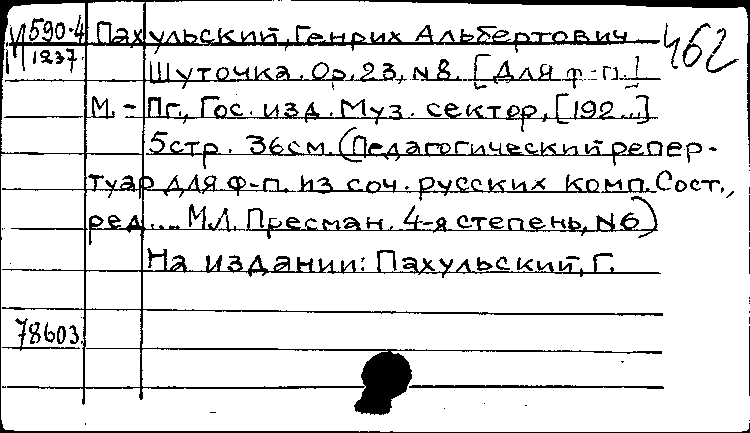 М 590-4 Пахульский, Генрих Альбертович 462
1237 Шуточка. Op. 23, N8. [Для ф-п.]
М. - Пг., Гос. изд. Муз. сектор, [192...]
5стр. 36см. (Педагогический репер-
туар для ф-п. из соч. русских комп. Сост.,
ред.... М.Л. Пресман. 4-я степень, N6)
На издании: Пахульский, Г.
78603.